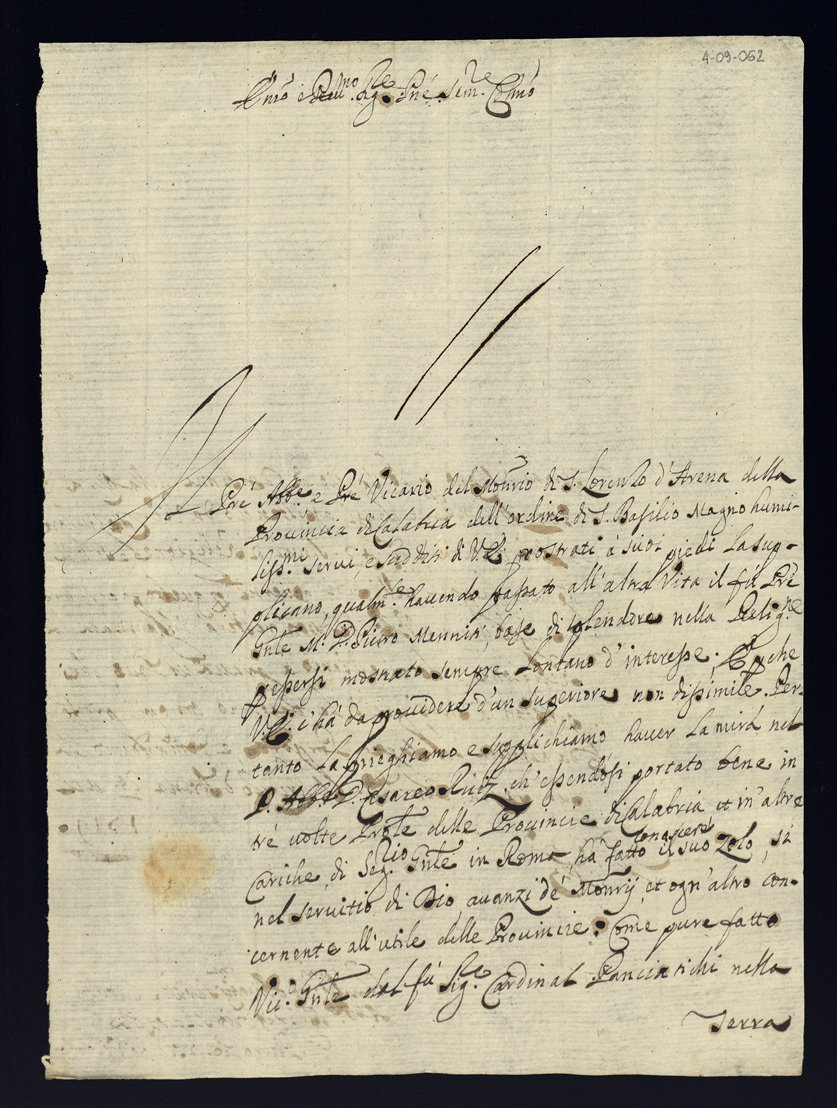 4-09-062
Em̃o e Reu.mo Sig.re Prẽ Sem.re Col.mo
Prẽ Abb.e e Prẽ Vicario del Mon̄rio di S. Lorenzo d'Arena della
Prouincia di Calabria dell'ordine di S. Basilio Magno humi-
liss.mi serui, e sudditi di V.E. prostrati à suoi piedi La sup-
plicano, qualm.te hauendo passato all'altra Vita il fù Prẽ
Gn̄le M. D. Pietro Menniti, base di splendore nella Relig.ne
p essersi mostrato sempre Lontano d'interesse. E perche
V.E. ci hà da prouedere d'un superiore non dissimile. Per-
tanto La prieghiamo e supplichiamo hauer La mirà nel
P. Abb.e D. Cesareo Ruiz, ch'essendosi portato bene in
trè volte Prõle delle Prouincie di Calabria et in altre
Cariche, di Seg.rio Gn̄le in Roma hà fatto conoscere il suo Zelo, si
nel seruitio di Dio auanzi de' Monrij, et ogn'altro con-
cernente all'utile delle Prouincie. Come pure fatto
Vic.o Gn̄le dal fù Sig.re Cardinal Panciatichi nella
Terra